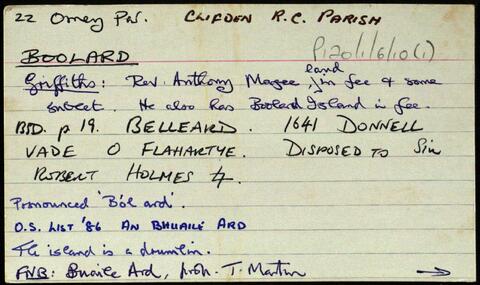 22 Omey Par. CLIFDEN R.C. PARISH
P120/1/6/10(1)
BOOLARD
Griffiths: Rev. Anthony Magee land in fee & some
sublet. He also has Boolard Island in fee.
BSD. p 19. BELLEARD. 1641 DONNELL
VADE O FLAHARTYE. DISPOSED TO Sir
ROBERT HOLMES
Pronounced 'Ból ard'.
O.S. LIST '86 AN BHUAILE ARD
The island is a drumlin.
FNB: Buaile Ard, T. Martin